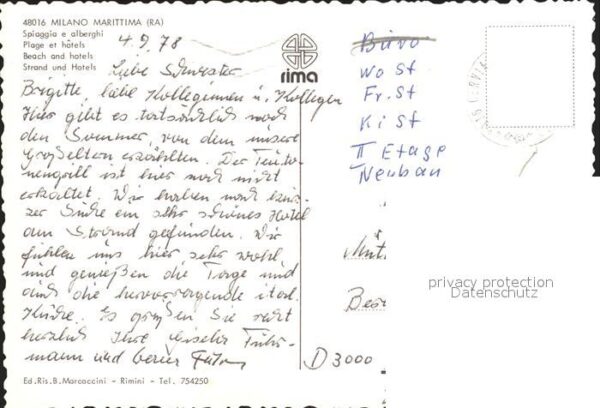 48016 MILANO MARITTIMA (RA)
Spiaggia e alberghi
Plage et hôtels
Beach and hotels
Strand und Hotels
4.9.78
rima
Liebe Schwester
Brigitte, liebe Kolleginnen u. Kollegen
Hier gibt es tatsächlich noch
den Sommer, von dem unsere
Großeltern erzählten. Der Teuto-
nengrill ist hier noch nicht
erkaltet. Wir haben nach kur-
zer Suche ein sehr schönes Hotel
am Strand gefunden. Wir
fühlen uns hier sehr wohl
und genießen die Tage und
auch die hervorragende ital.
Küche. Es grüßen Sie recht
herzlich Ihre Fuhr-
mann und
Büro
Wo St
Fr. St
Ki St
II Etage
Neubau
D 3000
privacy protection
Datenschutz
Ed.Ris.B.Marcaccini - Rimini - Tel. 754250